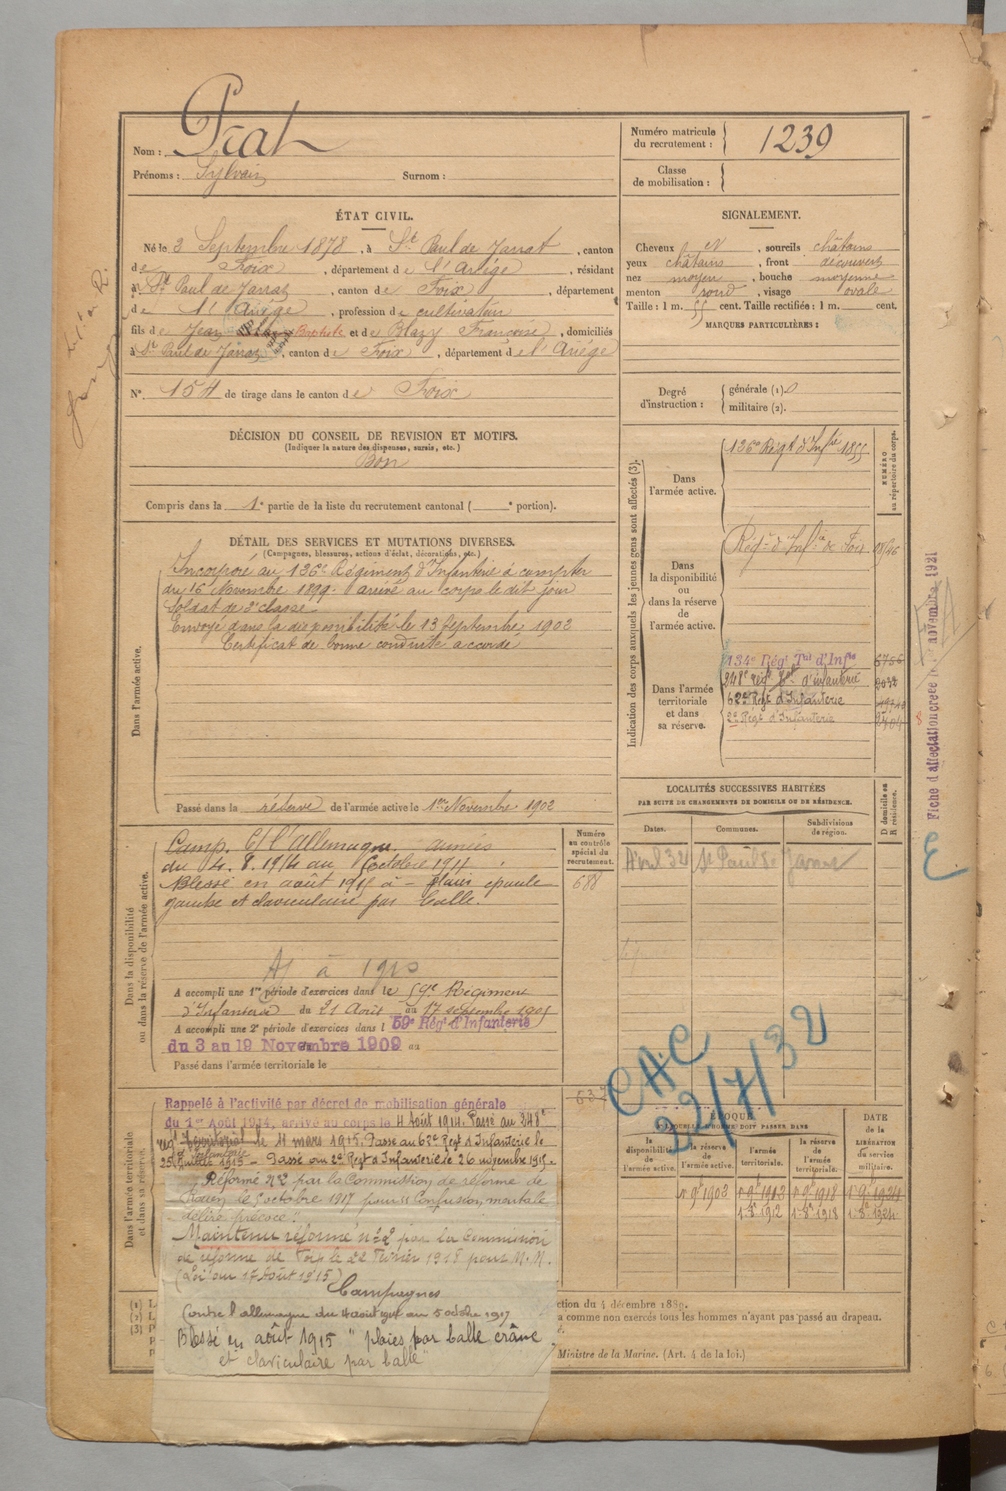 Nom : Prat
Prénoms : Sylvain Surnom :
Numéro matricule du recrutement : 1239
Classe de mobilisation :
ÉTAT CIVIL.
Né le 2 Septembre 1878, à St Paul de Jarrat, canton
de Foix, département de l'Ariège, résidant
à St Paul de Jarrat, canton de Foix, département
de l'Ariège, profession de cultivateur
fils de Jean et de Blazy Françoise, domiciliés
à St Paul de Jarrat, canton de Foix, département de l'Ariége
N° 154 de tirage dans le canton de Foix
SIGNALEMENT.
Cheveux , sourcils châtains
yeux châtains, front découvert
nez moyen, bouche moyenne
menton rond, visage ovale
Taille : 1 m. 55 cent. Taille rectifiée : 1 m. cent.
MARQUES PARTICULIÈRES :
Degré d'instruction : générale (1)
militaire (2).
DÉCISION DU CONSEIL DE REVISION ET MOTIFS.
(Indiquer la nature des dispenses, sursis, etc.)
Bon
Compris dans la 1e partie de la liste du recrutement cantonal ( e portion).
DÉTAIL DES SERVICES ET MUTATIONS DIVERSES.
(Campagnes, blessures, actions d'éclat, décorations, etc.)
Dans l'armée active.
Incorporé au 136e Régiment d'Infanterie à compter
du 16 Novembre 1899. arrivé au corps le dit jour
Soldat de 2e classe
Envoyé dans la disponibilité le 13 Septembre 1902
Certificat de bonne conduite accordé
Passé dans la réserve de l'armée active le 1er Novembre 1902
Indication des corps auxquels les jeunes gens sont affectés (3).
NUMÉRO au répertoire du corps.
Dans l'armée active.
136e Régt d'Infie 1855
Dans la disponibilité ou dans la réserve de l'armée active.
Régt d'Infie de Foix
Dans l'armée territoriale et dans sa réserve.
134e Régt Tal d'Infie
248e Régt d'infanterie
62e Régt d'Infanterie
2e Régt d'Infanterie
Fiche d'affectation créée le novembre 1921
LOCALITÉS SUCCESSIVES HABITÉES
PAR SUITE DE CHANGEMENTS DE DOMICILE OU DE RÉSIDENCE.
Dates. Communes. Subdivisions de région. D domicile ou R résidence.
Avril 32 St Paul de Jarrat
Dans la disponibilité ou dans la réserve de l'armée active.
Numéro au contrôle spécial du recrutement.
688
Camp. C/ l'Allemagne. années
du 4.8.1914 au 5 octobre 1917.
Blessé en août 1915 à – plaies epaule
gauche et claviculaire par balle.
Aj à 1910
A accompli une 1re période d'exercices dans le 59e Régiment
d'Infanterie du 21 Août au 17 septembre 1905
A accompli une 2e période d'exercices dans l 59e Régt d'Infanterie
du 3 au 19 Novembre 1909 au
Passé dans l'armée territoriale le
CAC
22/7/32
Dans l'armée territoriale et dans sa réserve.
Rappelé à l'activité par décret de mobilisation générale
du 1er Août 1914, arrivé au corps le 4 Août 1914. Passé au 348e
régt territorial le 11 mars 1915. Passé au 62e Régt d'Infanterie le
25 Juillet 1915 – Passé au 2e Régt d'Infanterie le 26 novembre 1915.
Réformé n°2 par la Commission de réforme de
Rouen le 5 octobre 1917 pour "Confusion mentale
délire précoce ?
Maintenu réformé n°2 par la Commission
de réforme de Foix le 22 Février 1918 pour M.M.
(Loi du 17 Août 1915)
Campagnes
Contre l'allemagne du 4 août 1914 au 5 octobre 1917
Blessé en août 1915 "plaies par balle crâne
et claviculaire par balle"
ÉPOQUE
A LAQUELLE L'HOMME DOIT PASSER DANS
la disponibilité de l'armée active. la réserve de l'armée active. l'armée territoriale. la réserve de l'armée territoriale.
DATE de la LIBÉRATION du service militaire.
1er 9bre 1903 1er 9bre 1913 1er 9bre 1918 1er 9bre 1924
1.8bre 1912 1.8bre 1918 1.8bre 1924
ction du 4 décembre 1889.
a comme non exercés tous les hommes n'ayant pas passé au drapeau.
Ministre de la Marine. (Art. 4 de la loi.)